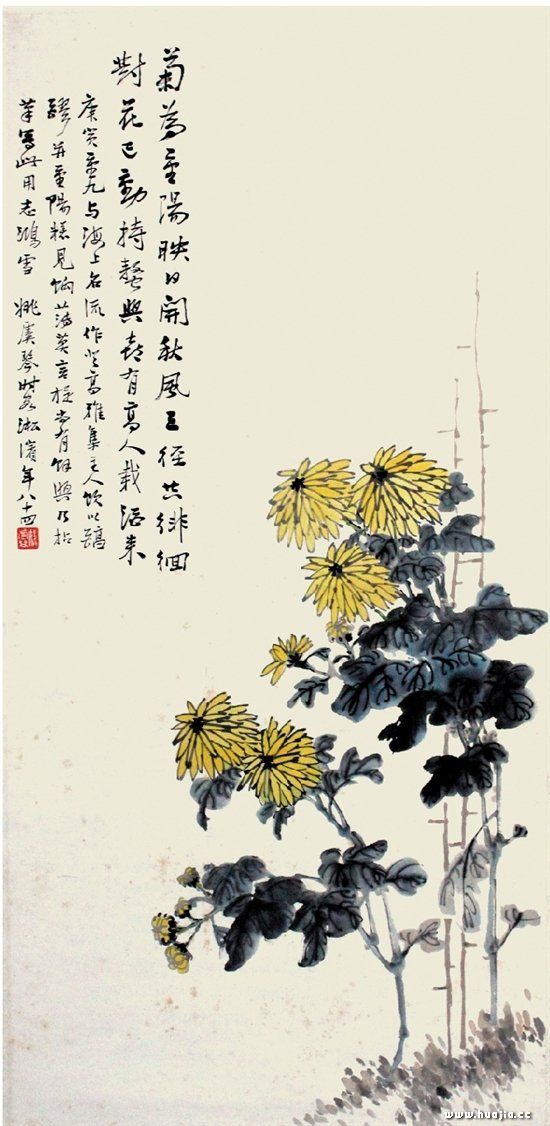 菊为重陽映日開秋風三径共徘徊
對花已動持螯興喜有高人載酒来
庚寅重九与海上名流作登高雅集主人飲以
醪并重陽糕見餉薄莫言旋尚有餘興乃拈
筆寫此用志鴻雪 姚虞琴時客淞濱年八十四
www.huajia.cc